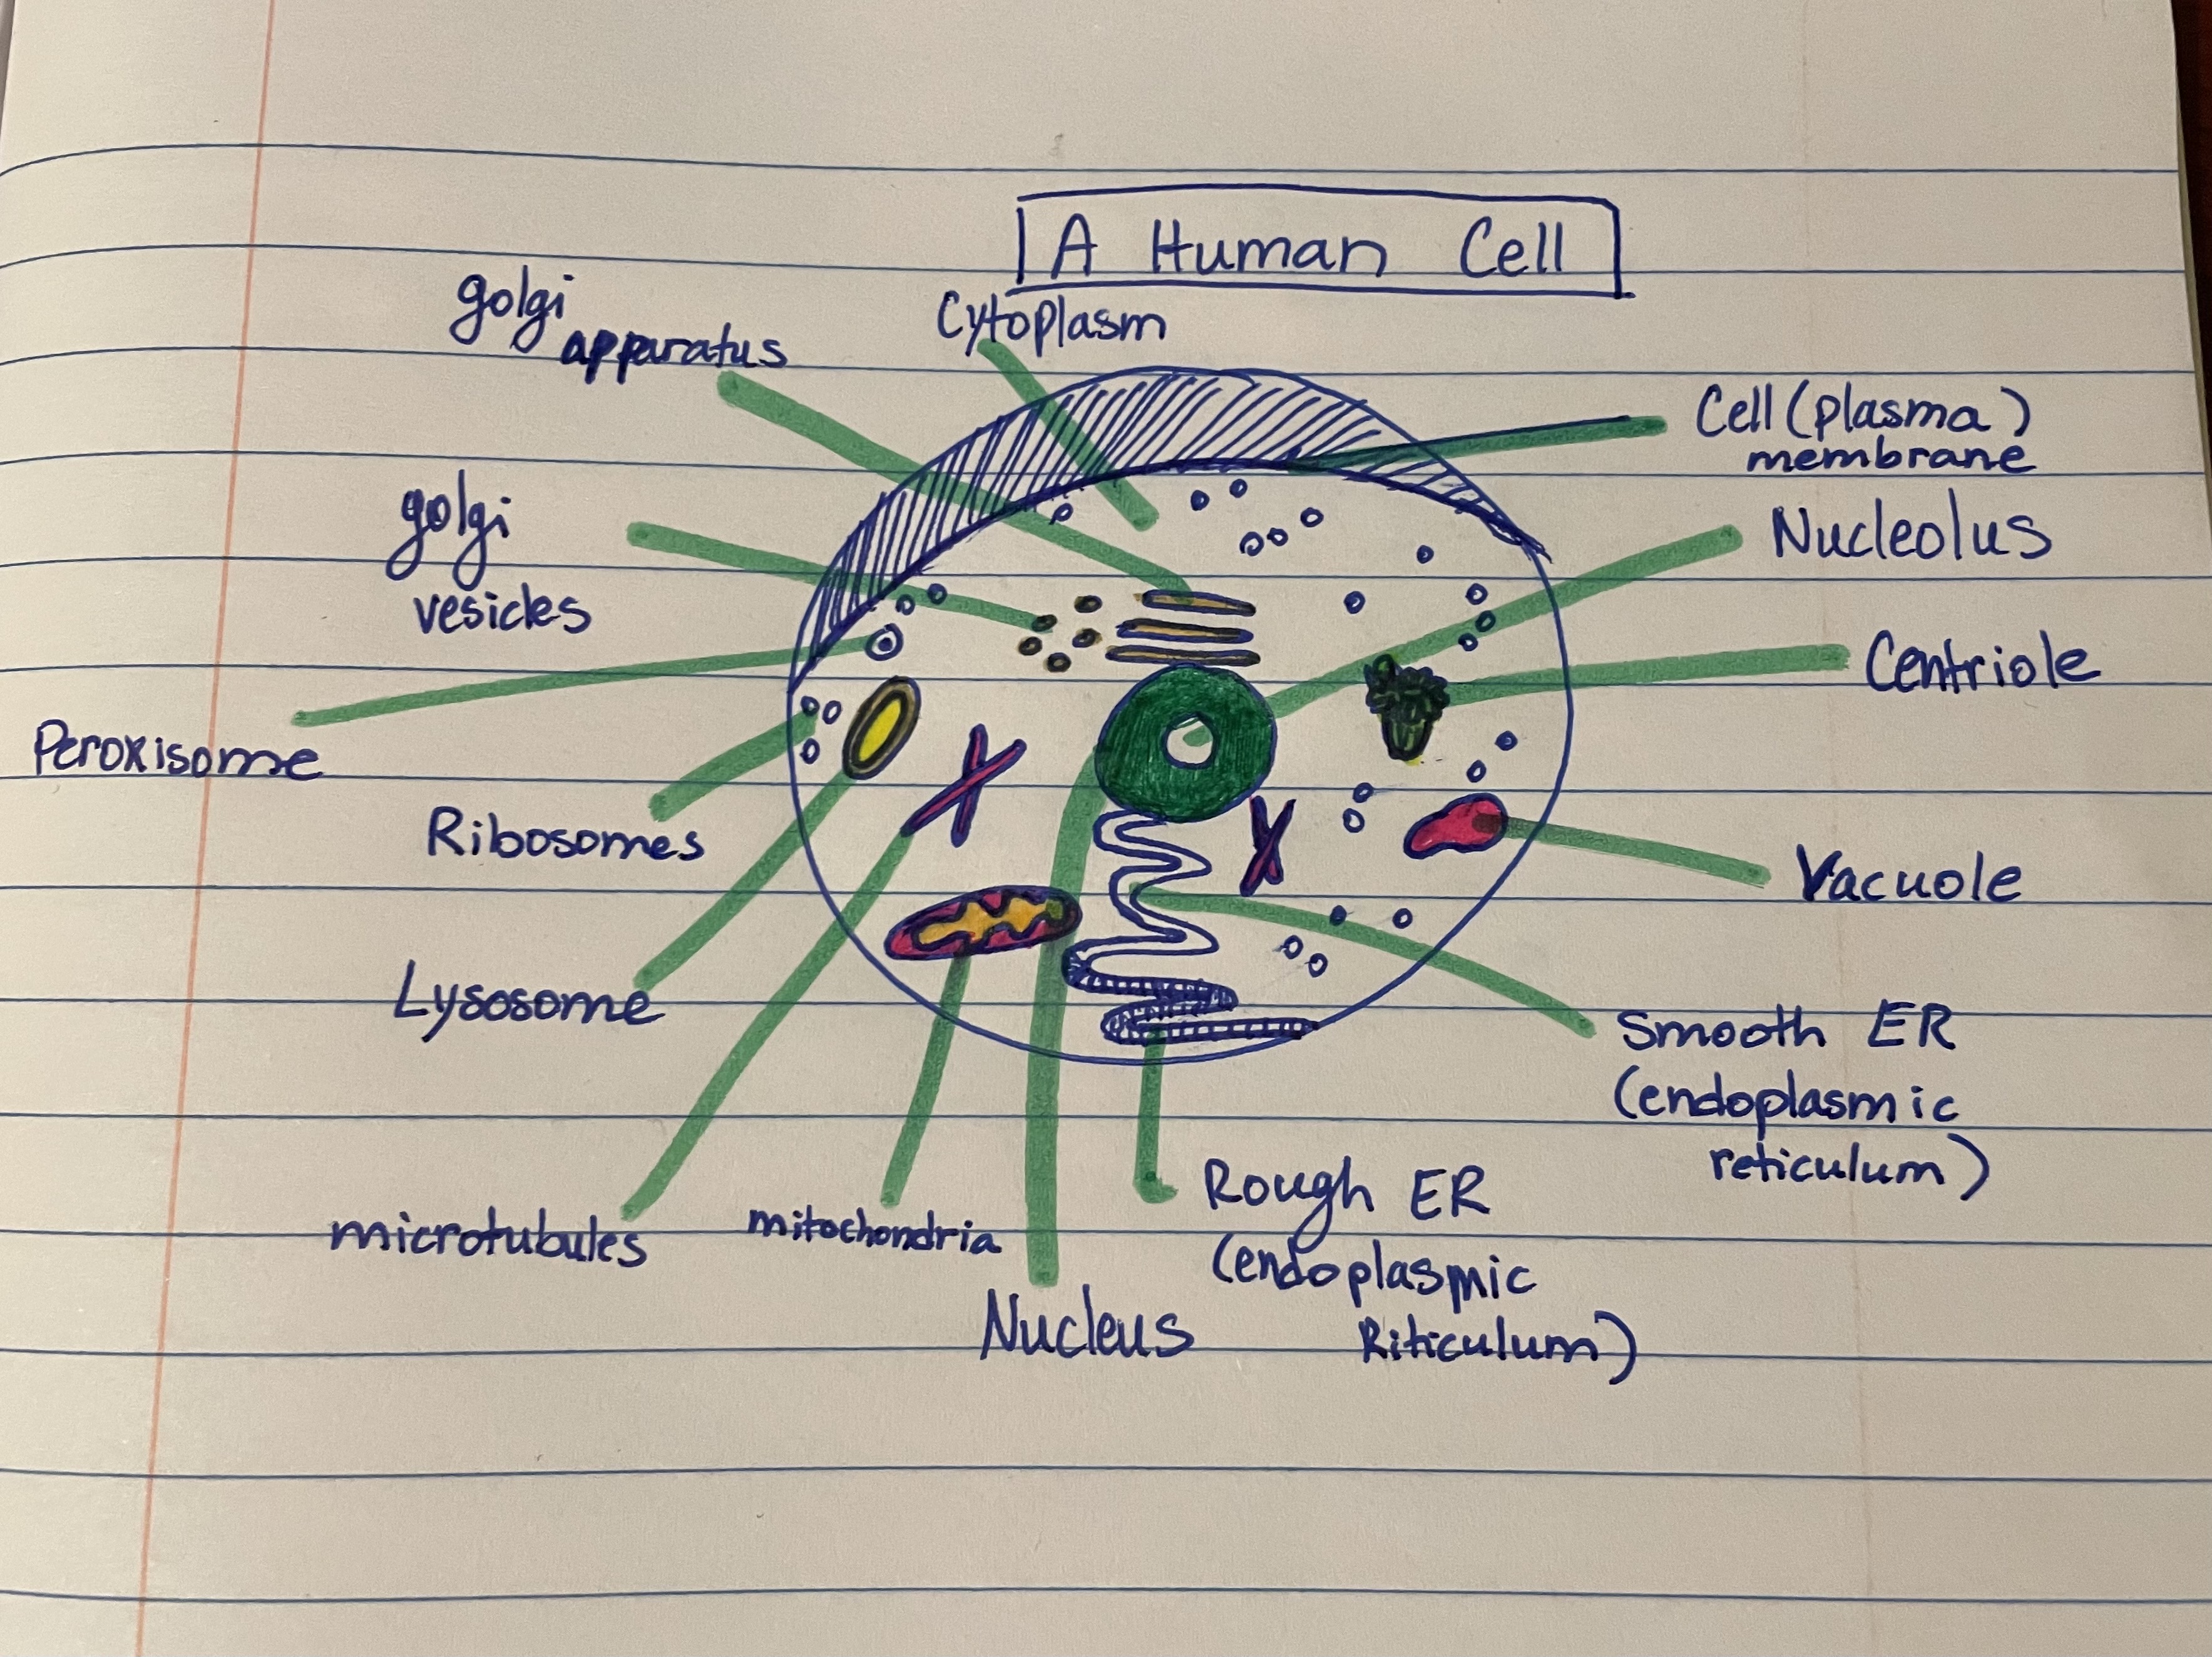 A Human Cell
golgi
apparatus
Cytoplasm
Cell (plasma)
membrane
golgi
vesicles
Nucleolus
Centriole
Peroxisome
Ribosomes
Vacuole
Lysosome
Smooth ER
(endoplasmic
reticulum)
microtubules
mitochondria
Rough ER
(endoplasmic
Riticulum)
Nucleus